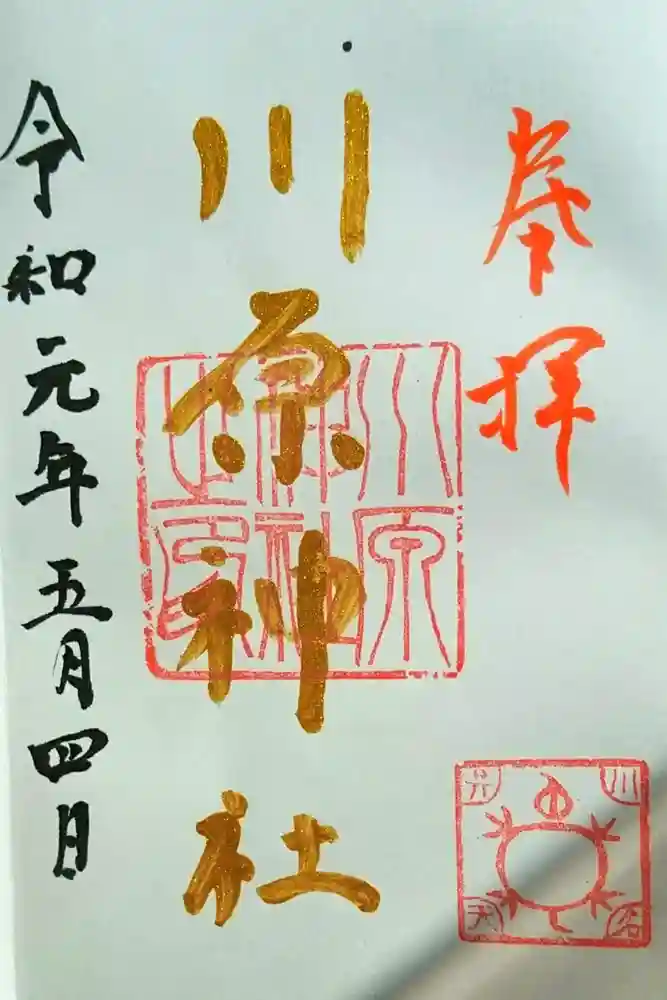 奉拝
川原神社
川原神社之印
令和元年五月四日